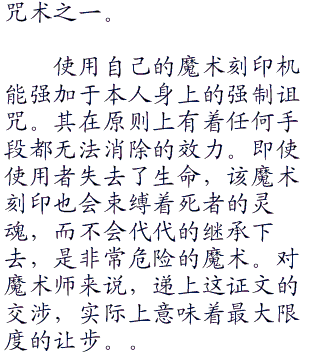 咒术之一。
使用自己的魔术刻印机
能强加于本人身上的强制诅
咒。其在原则上有着任何手
段都无法消除的效力。即使
使用者失去了生命，该魔术
刻印也会束缚着死者的灵
魂，而不会代代的继承下
去，是非常危险的魔术。对
魔术师来说，递上这证文的
交涉，实际上意味着最大限
度的让步。。